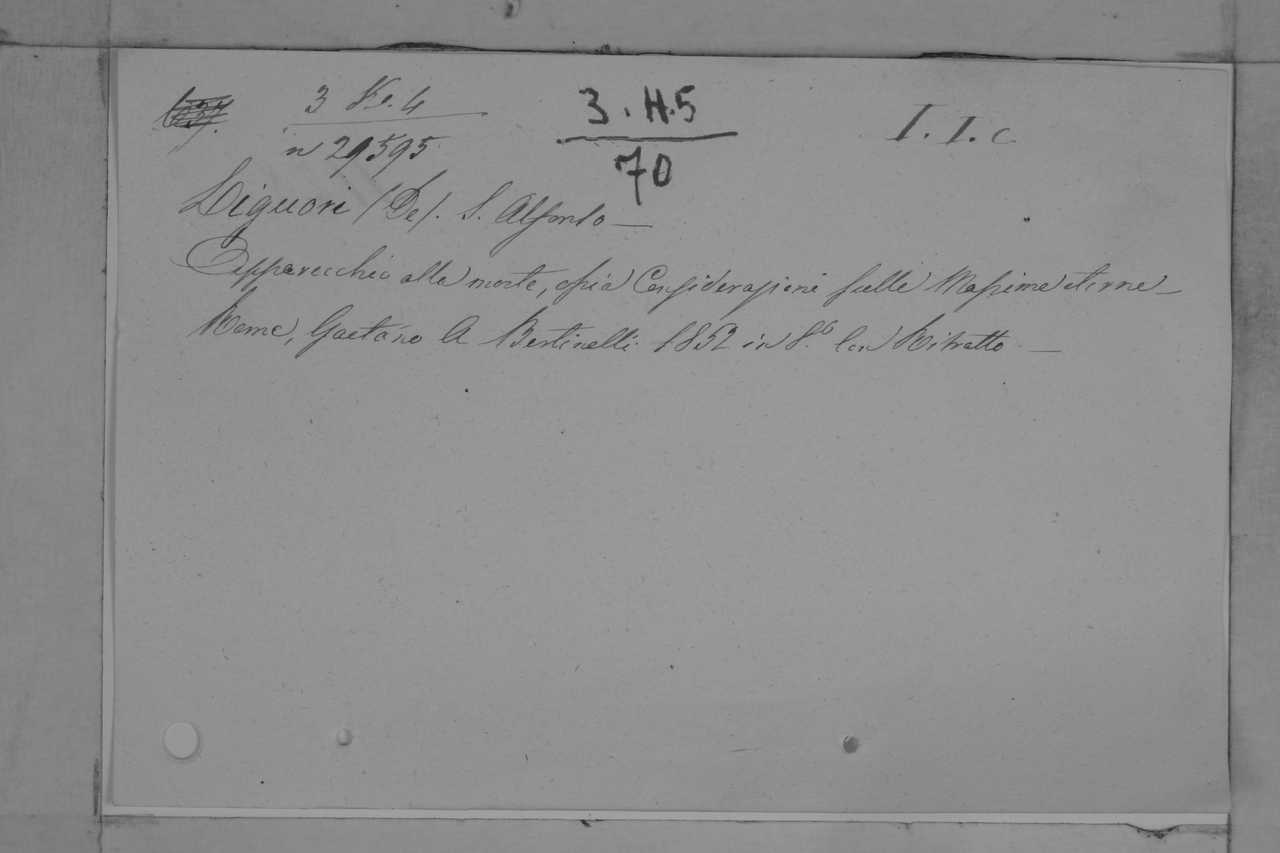 3 Ke. 4
n 29595
3. H. 5
70
I. I. c
Liguori (De). S. Alfonso —
Apparecchio alla morte, ossia Considerazioni sulle Massime eterne —
Roma, Gaetano A Bertinelli 1852 in 8.º Con Ritratto —